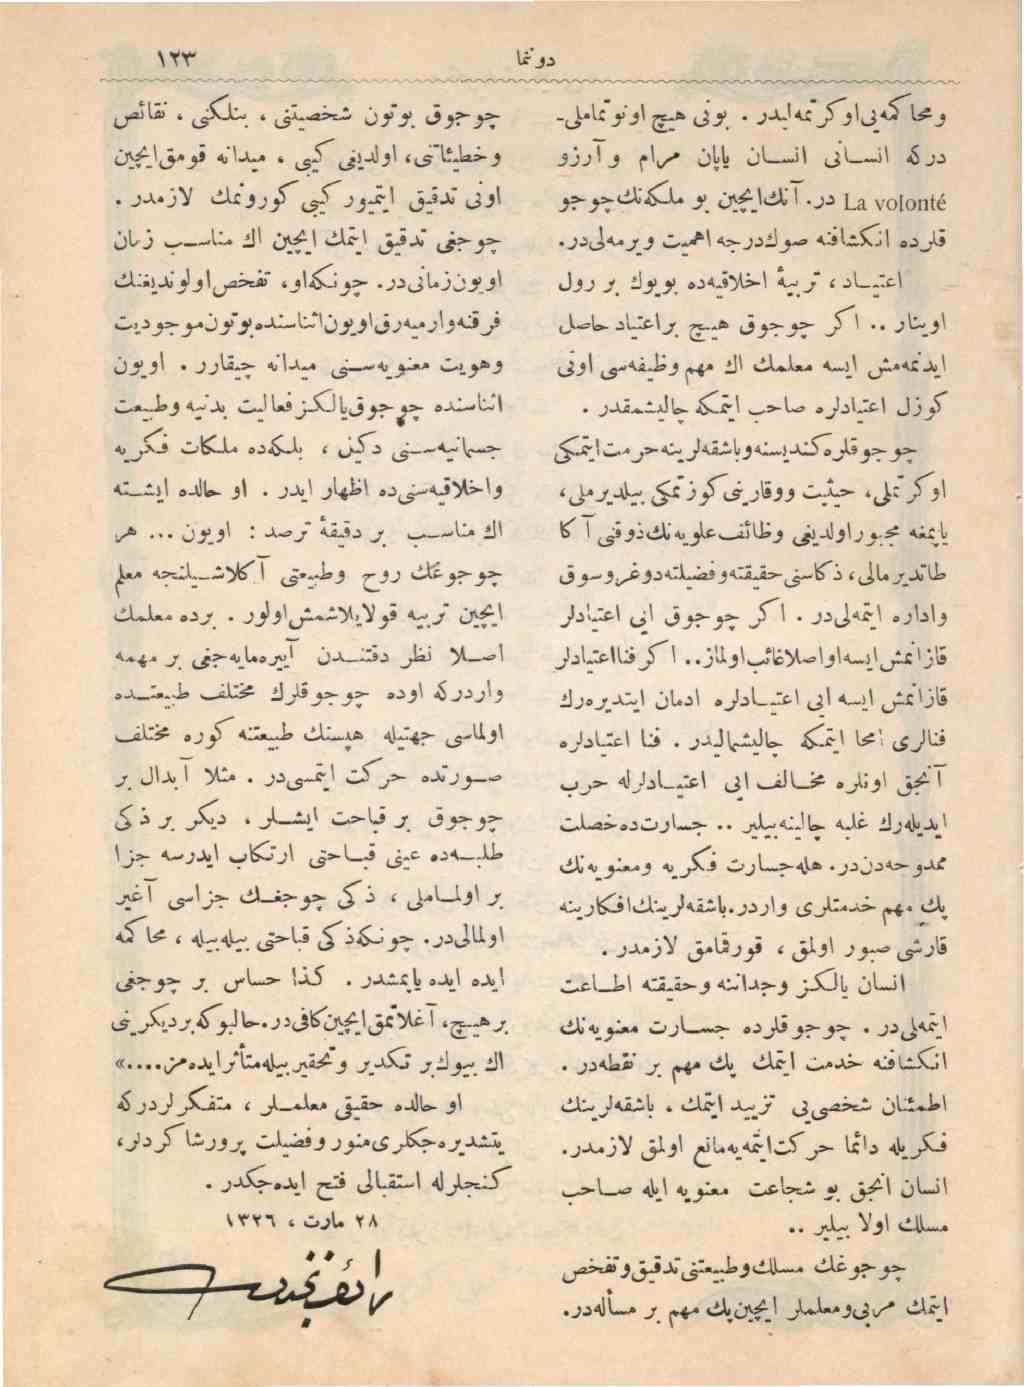 دوننما
١٢٣
ومحاكمه‌يى اوكرتمه‌ليدر . بونى هيچ اونوتماملى-
دركه انسانى انسان ياپان مرام و آرزو
La volonté در. آنك‌ايچين بو ملكه‌نك چوجو
قلرده انكشافنه صوك‌درجه اهميت ويرمه‌لى‌در.
اعتياد ، تربيۀ اخلاقيه‌ده بويوك بر رول
اوينار .. اكر چوجوق هيچ براعتياد حاصل
ايدنمه‌مش ايسه معلمك اك مهم وظيفه‌سى اونى
كوزل اعتيادلره صاحب ايتمكه چاليشمقدر .
چوجوقلره كنديسنه وباشقه‌لرينه حرمت ايتمكى
اوكرتملى، حيثيت ووقارينى كوزتمكى بيلديرملى،
ياپمغه مجبور اولديغى وظائف علويه‌نك ذوقنى آكا
طاتديرمالى، ذكاسنى حقيقته وفضيلته دوغرو سوق
واداره ايتمه‌لى‌در . اكر چوجوق ايى اعتيادلر
قازانمش ايسه او اصلا غائب اولماز.. اكر فنا اعتيادلر
قازانمش ايسه ايى اعتيادلره ادمان ايتديره‌رك
فنالرى امحا ايتمكه چاليشماليدر . فنا اعتيادلره
آنجق اونلره مخالف ايى اعتيادلرله حرب
ايديله‌رك غلبه چالينه‌بيلير .. جسارت‌ده خصلت
ممدوحه‌دن‌در. هله جسارت فكريه ومعنويه‌نك
پك مهم خدمتلرى واردر. باشقه‌لرينك افكارينه
قارشى صبور اولمق ، قورقمامق لازمدر .
انسان يالكز وجداننه وحقيقته اطاعت
ايتمه‌لى‌در . چوجوقلرده جسارت معنويه‌نك
انكشافنه خدمت ايتمك پك مهم بر نقطه‌در .
اطمئنان شخصى‌يى تزييد ايتمك ، باشقه‌لرينك
فكريله دائما حركت ايتمه‌يه مانع اولمق لازمدر.
انسان انجق بو شجاعت معنويه ايله صاحب
مسلك اولا بيلير ..
چوجوغك مسلك وطبيعتنى تدقيق وتفحص
ايتمك مربى ومعلملر ايچين پك مهم بر مسأله‌در.
چوجوق بوتون شخصيتنى ، بنلكنى ، نقائص
وخطيئاتنى، اولديغى كبى ، ميدانه قومق ايچين
اونى تدقيق ايتميور كبى كورونمك لازمدر .
چوجغى تدقيق ايتمك ايچين اك مناسب زمان
اويون زمانى‌در. چونكه او، تفحص اولونديغنك
فرقنه وارميه‌رق اويون اثناسنده بوتون موجوديت
وهويت معنويه‌سنى ميدانه چيقارر . اويون
اثناسنده چوجوق يالكز فعاليت بدنيه وطبيعت
جسمانيه‌سنى دكيل ، بلكه‌ده ملكات فكريه
واخلاقيه‌سنى‌ده اظهار ايدر . او حالده ايشته
اك مناسب بر دقيقۀ ترصد : اويون ... هر
چوجوغك روح وطبيعتى آكلاشيلنجه معلم
ايچين تربيه قولايلاشمش اولور . برده معلمك
اصلا نظر دقتندن آييره‌مايه‌جغى بر مهمه
واردركه اوده چوجوقلرك مختلف طبيعتده
اولماسى جهتيله هپسنك طبيعتنه كوره مختلف
صورتده حركت ايتمسى‌در . مثلا آبدال بر
چوجوق بر قباحت ايشلر ، ديكر بر ذكى
طلبه‌ده عينى قباحتى ارتكاب ايدرسه جزا
بر اولماملى ، ذكى چوجغك جزاسى آغير
اولمالى‌در. چونكه ذكى قباحتى بيله‌بيله ، محاكمه
ايده ايده ياپمشدر . كذا حساس بر چوجغى
برهيچ، آغلاتمق ايچين كافى‌در. حالبوكه برديكرينى
اك بيوك بر تكدير وتحقير بيله متأثر ايده‌مز....»
او حالده حقيقى معلملر ، متفكرلردركه
يتشديره‌جكلرى منور وفضيلت پرور شاكردلر،
كنجلرله استقبالى فتح ايده‌جكدر .
٢٨ مارت ، ١٣٢٦
رائف نجدت